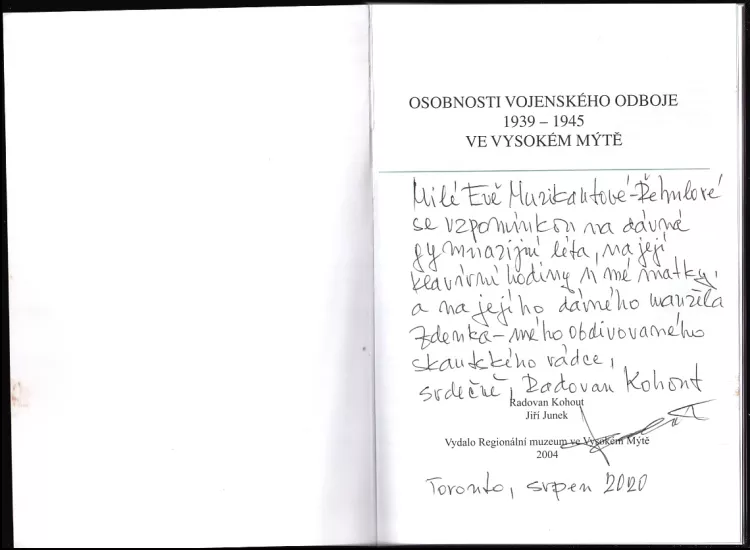 OSOBNOSTI VOJENSKÉHO ODBOJE
1939 – 1945
VE VYSOKÉM MÝTĚ
Milé Evě Muzikantové-Řehulové
se vzpomínkou na dávná
gymnazijní léta, na její
klavírní hodiny u mé matky,
a na jejího dávného manžela
Zdenka – mého obdivovaného
skautského rádce,
srdečně, Radovan Kohout
Radovan Kohout
Jiří Junek
Vydalo Regionální muzeum ve Vysokém Mýtě
2004
Toronto, srpen 2020